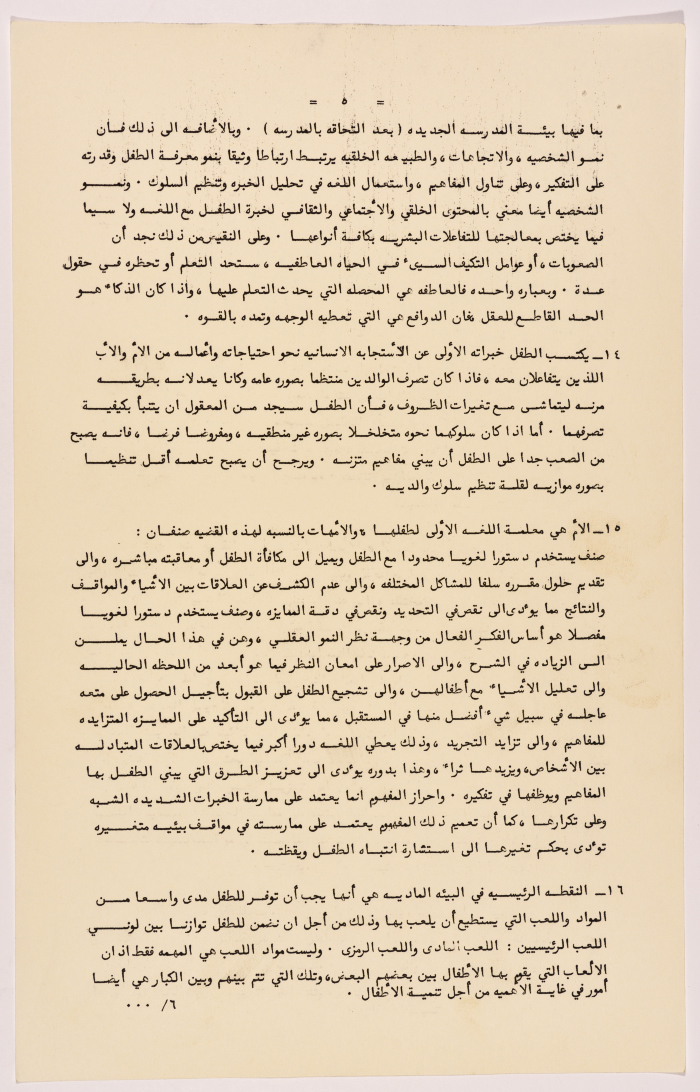 = ٥ =
بما فيها بيئة المدرسه الجديده ( بعد التحاقه بالمدرسه ) ٠ وبالاضافه الى ذلك فان
نمو الشخصيه ، والاتجاهات ، والطبيعه الخلقيه يرتبط ارتباطا وثيقا بنمو معرفة الطفل وقدرته
على التفكير ، وعلى تناول المفاهيم ، واستعمال اللغه في تحليل الخبره وتنظيم السلوك ٠ ونمو
الشخصيه أيضا معني بالمحتوى الخلقي والاجتماعي والثقافي لخبرة الطفل مع اللغه ولا سيما
فيما يختص بمعالجتها للتفاعلات البشريه بكافة أنواعها ٠ وعلى النقيض من ذلك نجد أن
الصعوبات ، أو عوامل التكيف السيىء في الحياه العاطفيه ، ستحد التعلم أو تحظره في حقول
عدة ٠ وبعباره واحده فالعاطفه هي المحصله التي يحدث التعلم عليها ، واذا كان الذكاء هو
الحد القاطع للعقل فان الدوافع هي التي تعطيه الوجهه وتمده بالقوه ٠
١٤ـ يكتسب الطفل خبراته الأولى عن الأستجابه الانسانيه نحو احتياجاته وأعماله من الأم والأب
اللذين يتفاعلان معه ، فاذا كان تصرف الوالدين منتظما بصوره عامه وكانا يعدلانه بطريقه
مرنه ليتماشى مع تغيرات الظروف ، فأن الطفل سيجد من المعقول ان يتنبأ بكيفية
تصرفهما ٠ أما اذا كان سلوكهما نحوه متخلخلا بصوره غير منطقيه ، ومفروضا فرضا ، فانه يصبح
من الصعب جدا على الطفل أن يبني مفاهيم متزنه ٠ ويرجح أن يصبح تعلمه أقل تنظيما
بصوره موازيه لقلة تنظيم سلوك والديه ٠
١٥ـ الأم هي معلمة اللغه الأولى لطفلها ، والأمهات بالنسبه لهذه القضيه صنفان :
صنف يستخدم دستورا لغويا محدودا مع الطفل ويميل الى مكافأة الطفل أو معاقبته مباشره ، والى
تقديم حلول مقرره سلفا للمشاكل المختلفه ، والى عدم الكشف عن العلاقات بين الأشياء والمواقف
والنتائج مما يوءدى الى نقص في التحديد ونقص في دقة الممايزه ، وصنف يستخدم دستورا لغويا
مفصلا هو أساس الفكر الفعال من وجهة نظر النمو العقلي ، وهن في هذا الحال يملن
الى الزياده في الشرح ، والى الاصرار على امعان النظر فيما هو أبعد من اللحظه الحاليه
والى تعليل الأشياء مع أطفالهن ، والى تشجيع الطفل على القبول بتأجيل الحصول على متعه
عاجله في سبيل شيء أفضل منها في المستقبل ، مما يوءدى الى التأكيد على الممايزه المتزايده
للمفاهيم ، والى تزايد التجريد ، وذلك يعطي اللغه دورا أكبر فيما يختص بالعلاقات المتبادله
بين الأشخاص ، ويزيدها ثراء ، وهذا بدوره يوءدى الى تعزيز الطرق التي يبني الطفل بها
المفاهيم ويوظفها في تفكيره ٠ واحراز المفهوم انما يعتمد على ممارسة الخبرات الشديده الشبه
وعلى تكرارها ، كما أن تعميم ذلك المفهوم يعتمد على ممارسته في مواقف بيئيه متغيره
توءدى بحكم تغيرها الى استشارة انتباه الطفل ويقظته ٠
١٦ـ النقطه الرئيسيه في البيئه الماديه هي أنها يجب أن توفر للطفل مدى واسعا من
المواد واللعب التي يستطيع أن يلعب بها وذلك من أجل ان نضمن للطفل توازنا بين لوني
اللعب الرئيسيين : اللعب المادى واللعب الرمزى ٠ وليست مواد اللعب هي المهمه فقط اذ ان
الألعاب التي يقوم بها الأطفال بين بعضهم البعض ، وتلك التي تتم بينهم وبين الكبار هي أيضا
أمور في غاية الأهميه من أجل تنمية الأطفال ٠
٦/ ٠٠٠